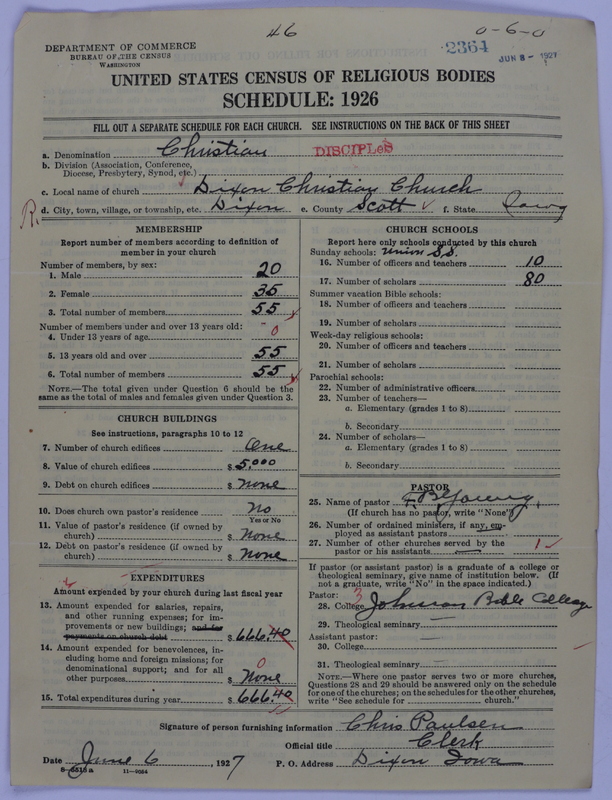 46
0-6-0
2364
JUN 8 - 1927
DEPARTMENT OF COMMERCE
BUREAU OF THE CENSUS
WASHINGTON
UNITED STATES CENSUS OF RELIGIOUS BODIES
SCHEDULE: 1926
FILL OUT A SEPARATE SCHEDULE FOR EACH CHURCH. SEE INSTRUCTIONS ON THE BACK OF THIS SHEET
a. Denomination Christian DISCIPLES
b. Division (Association, Conference, Diocese, Presbytery, Synod, etc.)
c. Local name of church Dixon Christian Church
R. d. City, town, village, or township, etc. Dixon e. County Scott f. State Iowa
MEMBERSHIP
Report number of members according to definition of member in your church
Number of members, by sex:
1. Male 20
2. Female 35
3. Total number of members 55
Number of members under and over 13 years old:
4. Under 13 years of age 0
5. 13 years old and over 55
6. Total number of members 55
NOTE.—The total given under Question 6 should be the same as the total of males and females given under Question 3.
CHURCH BUILDINGS
See instructions, paragraphs 10 to 12
7. Number of church edifices One
8. Value of church edifices $ 5,000
9. Debt on church edifices $ None
10. Does church own pastor's residence No
Yes or No
11. Value of pastor's residence (if owned by church) $ None
12. Debt on pastor's residence (if owned by church) $ None
EXPENDITURES
Amount expended by your church during last fiscal year
13. Amount expended for salaries, repairs, and other running expenses; for improvements or new buildings; and for payments on church debt $ 666.40
14. Amount expended for benevolences, including home and foreign missions; for denominational support; and for all other purposes 0 $ None
15. Total expenditures during year $ 666.40
CHURCH SCHOOLS
Report here only schools conducted by this church
Sunday schools: Union S.S.
16. Number of officers and teachers 10
17. Number of scholars 80
Summer vacation Bible schools:
18. Number of officers and teachers
19. Number of scholars
Week-day religious schools:
20. Number of officers and teachers
21. Number of scholars
Parochial schools:
22. Number of administrative officers
23. Number of teachers—
a. Elementary (grades 1 to 8)
b. Secondary
24. Number of scholars—
a. Elementary (grades 1 to 8)
b. Secondary
PASTOR
25. Name of pastor F. B. Young
(If church has no pastor, write "None")
26. Number of ordained ministers, if any, employed as assistant pastors
27. Number of other churches served by the pastor or his assistants 1
If pastor (or assistant pastor) is a graduate of a college or theological seminary, give name of institution below. (If not a graduate, write "No" in the space indicated.)
Pastor: 3
28. College Johnson Bible College
29. Theological seminary
Assistant pastor:
30. College
31. Theological seminary
NOTE.—Where one pastor serves two or more churches, Questions 28 and 29 should be answered only on the schedule for one of the churches; on the schedules for the other churches, write "See schedule for church."
Signature of person furnishing information Chris Paulsen
Official title Clerk
Date June 6, 1927 P. O. Address Dixon Iowa
8-5513a 11-9064